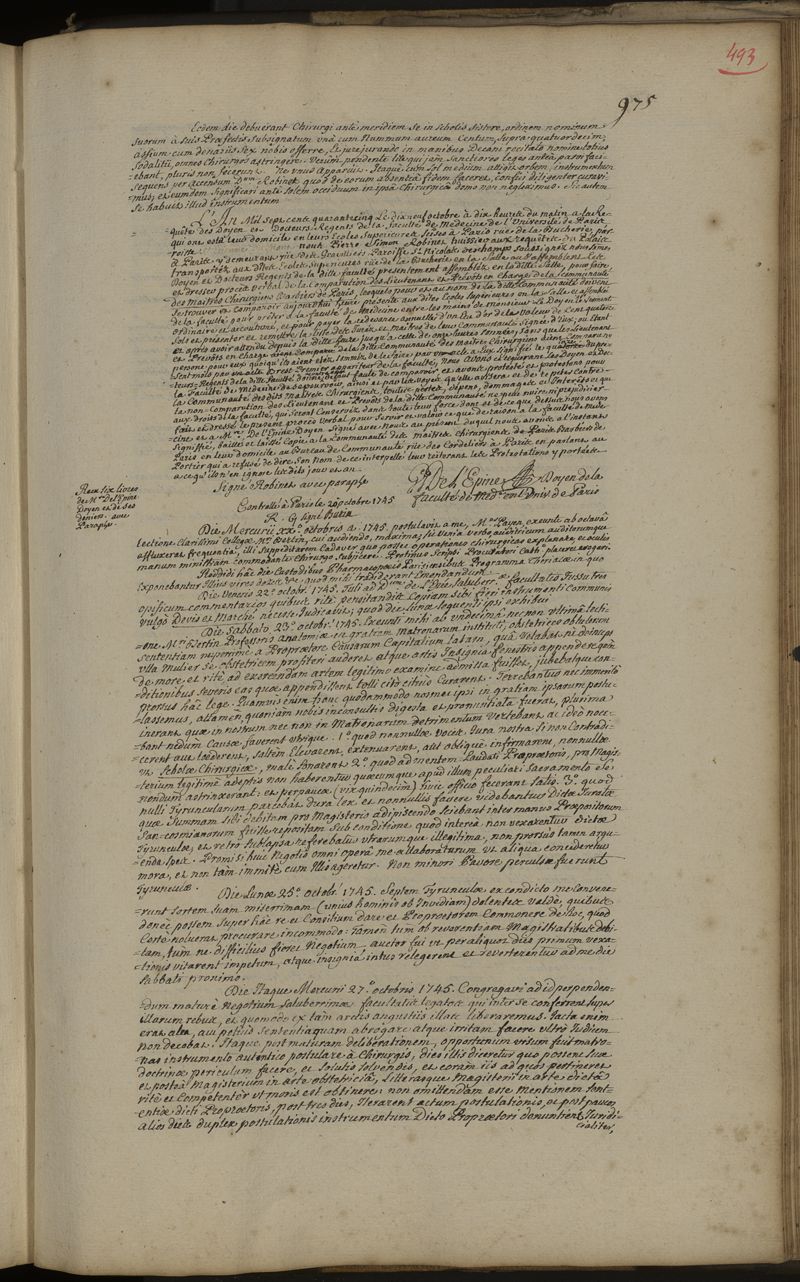 493
975
Eodem die debuerant Chirurgi ante meridiem se in scholis sistere, ordinem nominum
suorum a suis Præfectis subsignatum unà cum Nummum aureum Centum supra quatuordecim
assium cum denariis sex nobis offerre, et jurejurando in manibus Decani recitato nominatos
Sodalitii, omnes Chirurgos astringere. Verum pendente lite qui jam sanctiores leges antea parvi faci-
ebant, pluris non fecerunt. Ne unus apparuit. Itaque cum sol medium attigit orbem, instrumentum
sequens per accensum D.num Robinot quod de eorum absentia fidem faceret, confici diligenter curavi-
mus, et eumdem significari ante solem occiduum in ipsa Chirurgica domo non negleximus. Sic autem
se habuit illud instrumentum
L'An Mil Sept cents quarante cinq Le dix neuf octobre à dix heures du matin à la Re-
quête des Doyen et Docteurs Regents de la faculté de Medecine de l'Université de Paris
qui ont élû leur domicile en leurs Ecoles Superieures Sises à Paris rue de la Bucherie par-
roisse nous Pierre Simon Robinot huissier aux requêtes du Palais
à Paris y demeurant rue des Gravilliers Paroisse St. Nicolas deschamps soussigné nous sommes
transportés aux dittes Ecoles Superieures rue de la Bucherie en la Salle où s'assemblent les
Doyen et Docteurs Regents de la ditte faculté presentement assemblés en la ditte Salle, pour faire
et dresser procès verbal de la Comparution des Lieutenant et Prevôts en charge de la Communauté
des Maitres Chirurgiens Barbiers de Paris, lesquels pour et au nom de la ditte Communauté doivent
se trouver et comparoir aujourd'hui heure presente aux dites Ecoles Superieures en la Salle et assemblée
de la faculté, pour prêter à la faculté de Medecine entre les mains de Monsieur Le Doyen le serment
ordinaire et accoutumé, et pour payer la redevance annuelle d'un Ecu d'or de la Valeur de Cent quatorze
sols et presenter et remettre la liste des Jurés et Maitres de leur Communauté Signée d'eux; ou étant
et après avoir attendu depuis la ditte heure jusqu'à celle de onze heures sonnées, sans que les Lieutenant
et Prevôts en charge soient Comparus de la ditte Communauté des Maitres Chirurgiens ni
personne pour eux quoiqu'ils aient été sommés de le faire par
la Faculté de Medecine de se pourvoir, ainsi et par les voyes qu'elle avisera et de
la Communauté des dits Maitres Chirurgiens, toutes pertes, dépens, dommages et Interêts et que
la non Comparution des Lieutenant et Prevôts de la ditte Communauté ne puis nuire ni prejudicier
aux droits de la faculté, qui seront Conservés dans toute leur force, dont et de ce que dessus nous avons
fait et dressé le present procès verbal pour servir et valoir ce que de raison à la faculté de Mede-
cine et à M.e De l'Epine Doyen Signé avec nous au present duquel nous avons à l'instant
Signifié, baillé et laissé Copie à la Communauté des Maitres Chirurgiens de Paris Barbiers de
Paris en leur domicile au Bureau de Communauté rue des Cordeliers à Paris en parlant au
Portier qui a refusé de dire son Nom de ce interpellé leur reiterant les Protestations y portées
à ce qu'ils n'en ignorent les dits jour et an.
Signé Robinot avec paraphe
De L'Epine Doyen de la
faculté de Med. en l'Univ. de Paris
Reçu six livres
de M.r De l'Epine
Doyen et de ses
deniers avec
Paraphe.
Controllé à Paris le 20 octobre 1745
R. 9s signé Butin
Die Mercurii XX.ª octobris a. 1745. postulavit a me, M.er Payen, exeunte ab octava
lectione Clarissimi Collegæ M.ri Bertin, cui audiendo, maxima, sit venia verbo auditricum auditorumque
effluxerat frequentia, illi suppeditarem Cadaver quo posset operationes chirurgicas explanare, et oculis
manum ministram commodante Chirurgo subjicere. Protinus scripsi Procuratori Cath. placeret erogari.
Reddidi hac die Custodibus Pharmacopoeis Parisiensibus Programma theriacæ in quo
Exponebantur illius vires dotes &c. quod mihi tradiderant Emendandum.
Die Veneris 22.ª octobr. 1745. Tuli ad D.num De L'Epine Saluber.æ facultatis Jussu tres
opificum commentarios quibus ritè pensitandis Copiam sibi fieri instrumenti Communis
vulgò Devis et Marché necesse Judicavit; quod die Lunæ sequenti ipsi exhibui.
Die Sabbato, 23.ª octobr. 1745. Exeunti mihi ab undecima nec non ultima lecti-
one M.ri Bertin Professoris anatomiæ in gratiam matronarum instituti, obstetrices obtulerunt
sententiam nuperrimè a Proprætore Causarum Capitalium latam, quà vetabat ne deinceps
ulla Mulier se obstetricem profiteri auderet atque artis Insignia fenestris appendere, quin
de more, et ritè ad exercendam artem legitimo examine admissa fuisset, jubebatque con-
ditionibus severis eas quæ appendissent tolli citò citiùs Curarent. Terrebantur nec immeritò
prorsus hac lege. Quamvis enim hanc quodammodo nosmet ipsi in gratiam ipsarum postu-
lassemus, attamen quoniam nobis inconsultis digesta et pronuntiata fuerat, plurima
inerant quæ in nostrum nec non in Matronarum detrimentum vertebant, ac ideò noce-
bant nedum Causæ faverent utrique. 1.º quod nonnullæ voces Jura nostra si non Contradi-
cerent aut læderent, saltem Elevarent, extenuarent, aut obliquè infirmarent, nonnullæ
ut Scholæ Chirurgicæ, malè sonarent 2.º quod ad mentem Laudati Proprætoris, pro Magis-
terium legitimè adeptis non haberentur quæcumque apud illum peculiari sacramento se
nondum astrinxerant: et perpaucæ (vix quindecim) huic officio fecerant satis. 3.º quod
nulli Tyruncularum parcebat dura lex et nonnullis favere videbantur Dictæ Jurata
quæ Summam sibi debitam pro Magisterio adipiscendo sciebant inter manus Præpositorum
San-cosmianorum fuisse repositam sub conditione quod intereà non vexarentur dictæ
Tyrunculæ; et retrò sublapsa referebatur utrarumque illegitima, non prorsus tamen argu-
enda spes. Promisi huic Negotio omni operâ me allaboraturum ut aliqua concederetur
mora, et non tam immitè cum Illis ageretur. Non minori Pavore perculsæ fuerunt
Tyrunculæ.
Die Lunæ 25.ª octobr. 1745. Septem Tyrunculæ ex condicto me convene-
runt sortem suam miserrimam (unius hominis ob Invidiam) dolentes valdè, quibus
donec possem super hâc re et Consilium dare et Proprætorem Commonere de hoc, quod
Certò nolueras procurare incommodo: tamen tum ob reverentiam Magistratibus debi-
tam, tum ne difficilius fieret Negotium, auctor fui ut per aliquot dies primum vexa-
tionis vitarent impetum, atque insignia intus relegerent et reverterentur ad me die
sabbati proximo.
Die Itaque Mercurii 27.ª octobris 1745. Congregavi ad id perpenden-
dum maturè Negotium saluberrimæ facultatis legatos qui inter se conferrent super
Illarum rebus, et quomodo ex tam arctis angustiis illas liberaremus. Jacta enim
erat alea, aut potiùs sententia quam abrogare atque irritam facere ultrò Judicem
non decebat. Itaque post maturam deliberationem, opportunum visum fuit matro-
nas instrumento autentico postulare à Chirurgis, dies illis diceretur quo possent suæ
doctrinæ periculum facere, et solutis solvendis, et coram iis ad quos pertineret
et posteà Magisterium in arte obstetriciâ, Litterasque Magisterii in arte dictâ
ritè et Competenter ut moris est obtinere: non omittendam esse mentionem sent-
entiæ dicti Proprætoris, post tres dies, Iterarent actum postulationis, et post paucos
alios dies duplex postulationis instrumentum Dicto Proprætori denuntient Juridi-
cialiter,